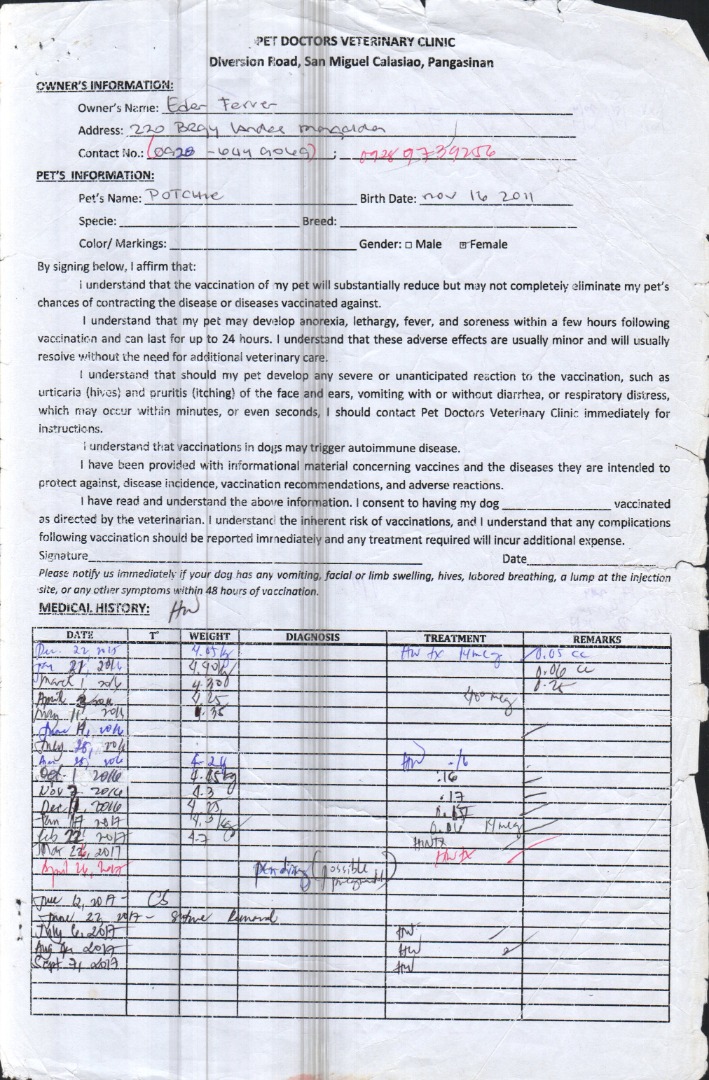 PET DOCTORS VETERINARY CLINIC
Diversion Road, San Miguel Calasiao, Pangasinan
OWNER'S INFORMATION:
Owner's Name: Eder Ferrer
Address: 220
Contact No.: (0928 - 644 9069) ; 09289739256
PET'S INFORMATION:
Pet's Name: POTCHIE Birth Date: nov 16 2011
Specie: Breed:
Color/ Markings: Gender: □ Male Female
By signing below, I affirm that:
I understand that the vaccination of my pet will substantially reduce but may not completely eliminate my pet's
chances of contracting the disease or diseases vaccinated against.
I understand that my pet may develop anorexia, lethargy, fever, and soreness within a few hours following
vaccination and can last for up to 24 hours. I understand that these adverse effects are usually minor and will usually
resolve without the need for additional veterinary care.
I understand that should my pet develop any severe or unanticipated reaction to the vaccination, such as
urticaria (hives) and pruritis (itching) of the face and ears, vomiting with or without diarrhea, or respiratory distress,
which may occur within minutes, or even seconds, I should contact Pet Doctors Veterinary Clinic immediately for
instructions.
I understand that vaccinations in dogs may trigger autoimmune disease.
I have been provided with informational material concerning vaccines and the diseases they are intended to
protect against, disease incidence, vaccination recommendations, and adverse reactions.
I have read and understand the above information. I consent to having my dog vaccinated
as directed by the veterinarian. I understand the inherent risk of vaccinations, and I understand that any complications
following vaccination should be reported immediately and any treatment required will incur additional expense.
Signature Date
Please notify us immediately if your dog has any vomiting, facial or limb swelling, hives, labored breathing, a lump at the injection
site, or any other symptoms within 48 hours of vaccination.
MEDICAL HISTORY: HW
DATE T° WEIGHT DIAGNOSIS TREATMENT REMARKS
Dec. 22 2015 HW tx 0.05 cc
Jan 21, 2016 0.06 cc
March 1 2016 0.25
April 4.25 400 mcg
May 11, 2016 4.35
June 2016
July 28, 2016
2016 HW
Oct. 1 2016 4.85kg .16
Nov 7 2016 4.3 .17
Dec 2016
Jan 17 2017
Feb 22 2017 4.7 HWTX
Mar 2017 HWTX
April 26, 2017 pending (possible pregnant)
June 12, 2017 - CS
June 22, 2017 - Removal
July 6, 2017 HW
Aug 2017 HW
Sept 7, 2017 HW